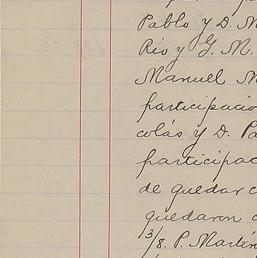 Pablo y D. M
Rio y G. M.
Manuel M
participacio
colás y D. Pa
participac
de quedar c
quedaron
3/8. P. Martín